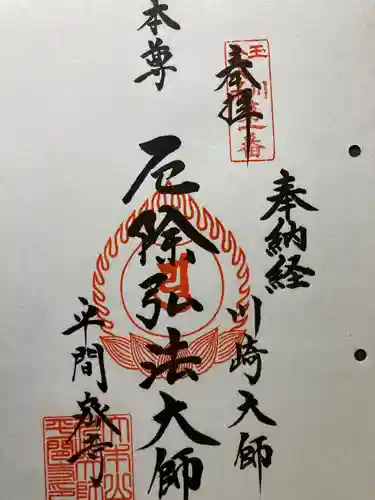 奉拝
玉川第一番
奉納経
川崎大師
本尊
厄除弘法大師
平間寺